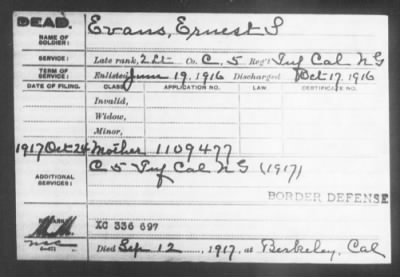 DEAD.
NAME OF SOLDIER: Evans, Ernest S
SERVICE: Late rank, 2 Lt Co. C, 5 Reg't Inf Cal N G
TERM OF SERVICE: Enlisted June 19, 1916 Discharged Oct 17, 1916
DATE OF FILING. CLASS. APPLICATION NO. LAW. CERTIFICATE NO.
Invalid,
Widow,
Minor,
1917 Oct 24 Mother 1109477
ADDITIONAL SERVICES: C 5 Inf Cal N G (1917)
BORDER DEFENSE
XC 336 697
Died Sep 12, 1917, at Berkeley, Cal